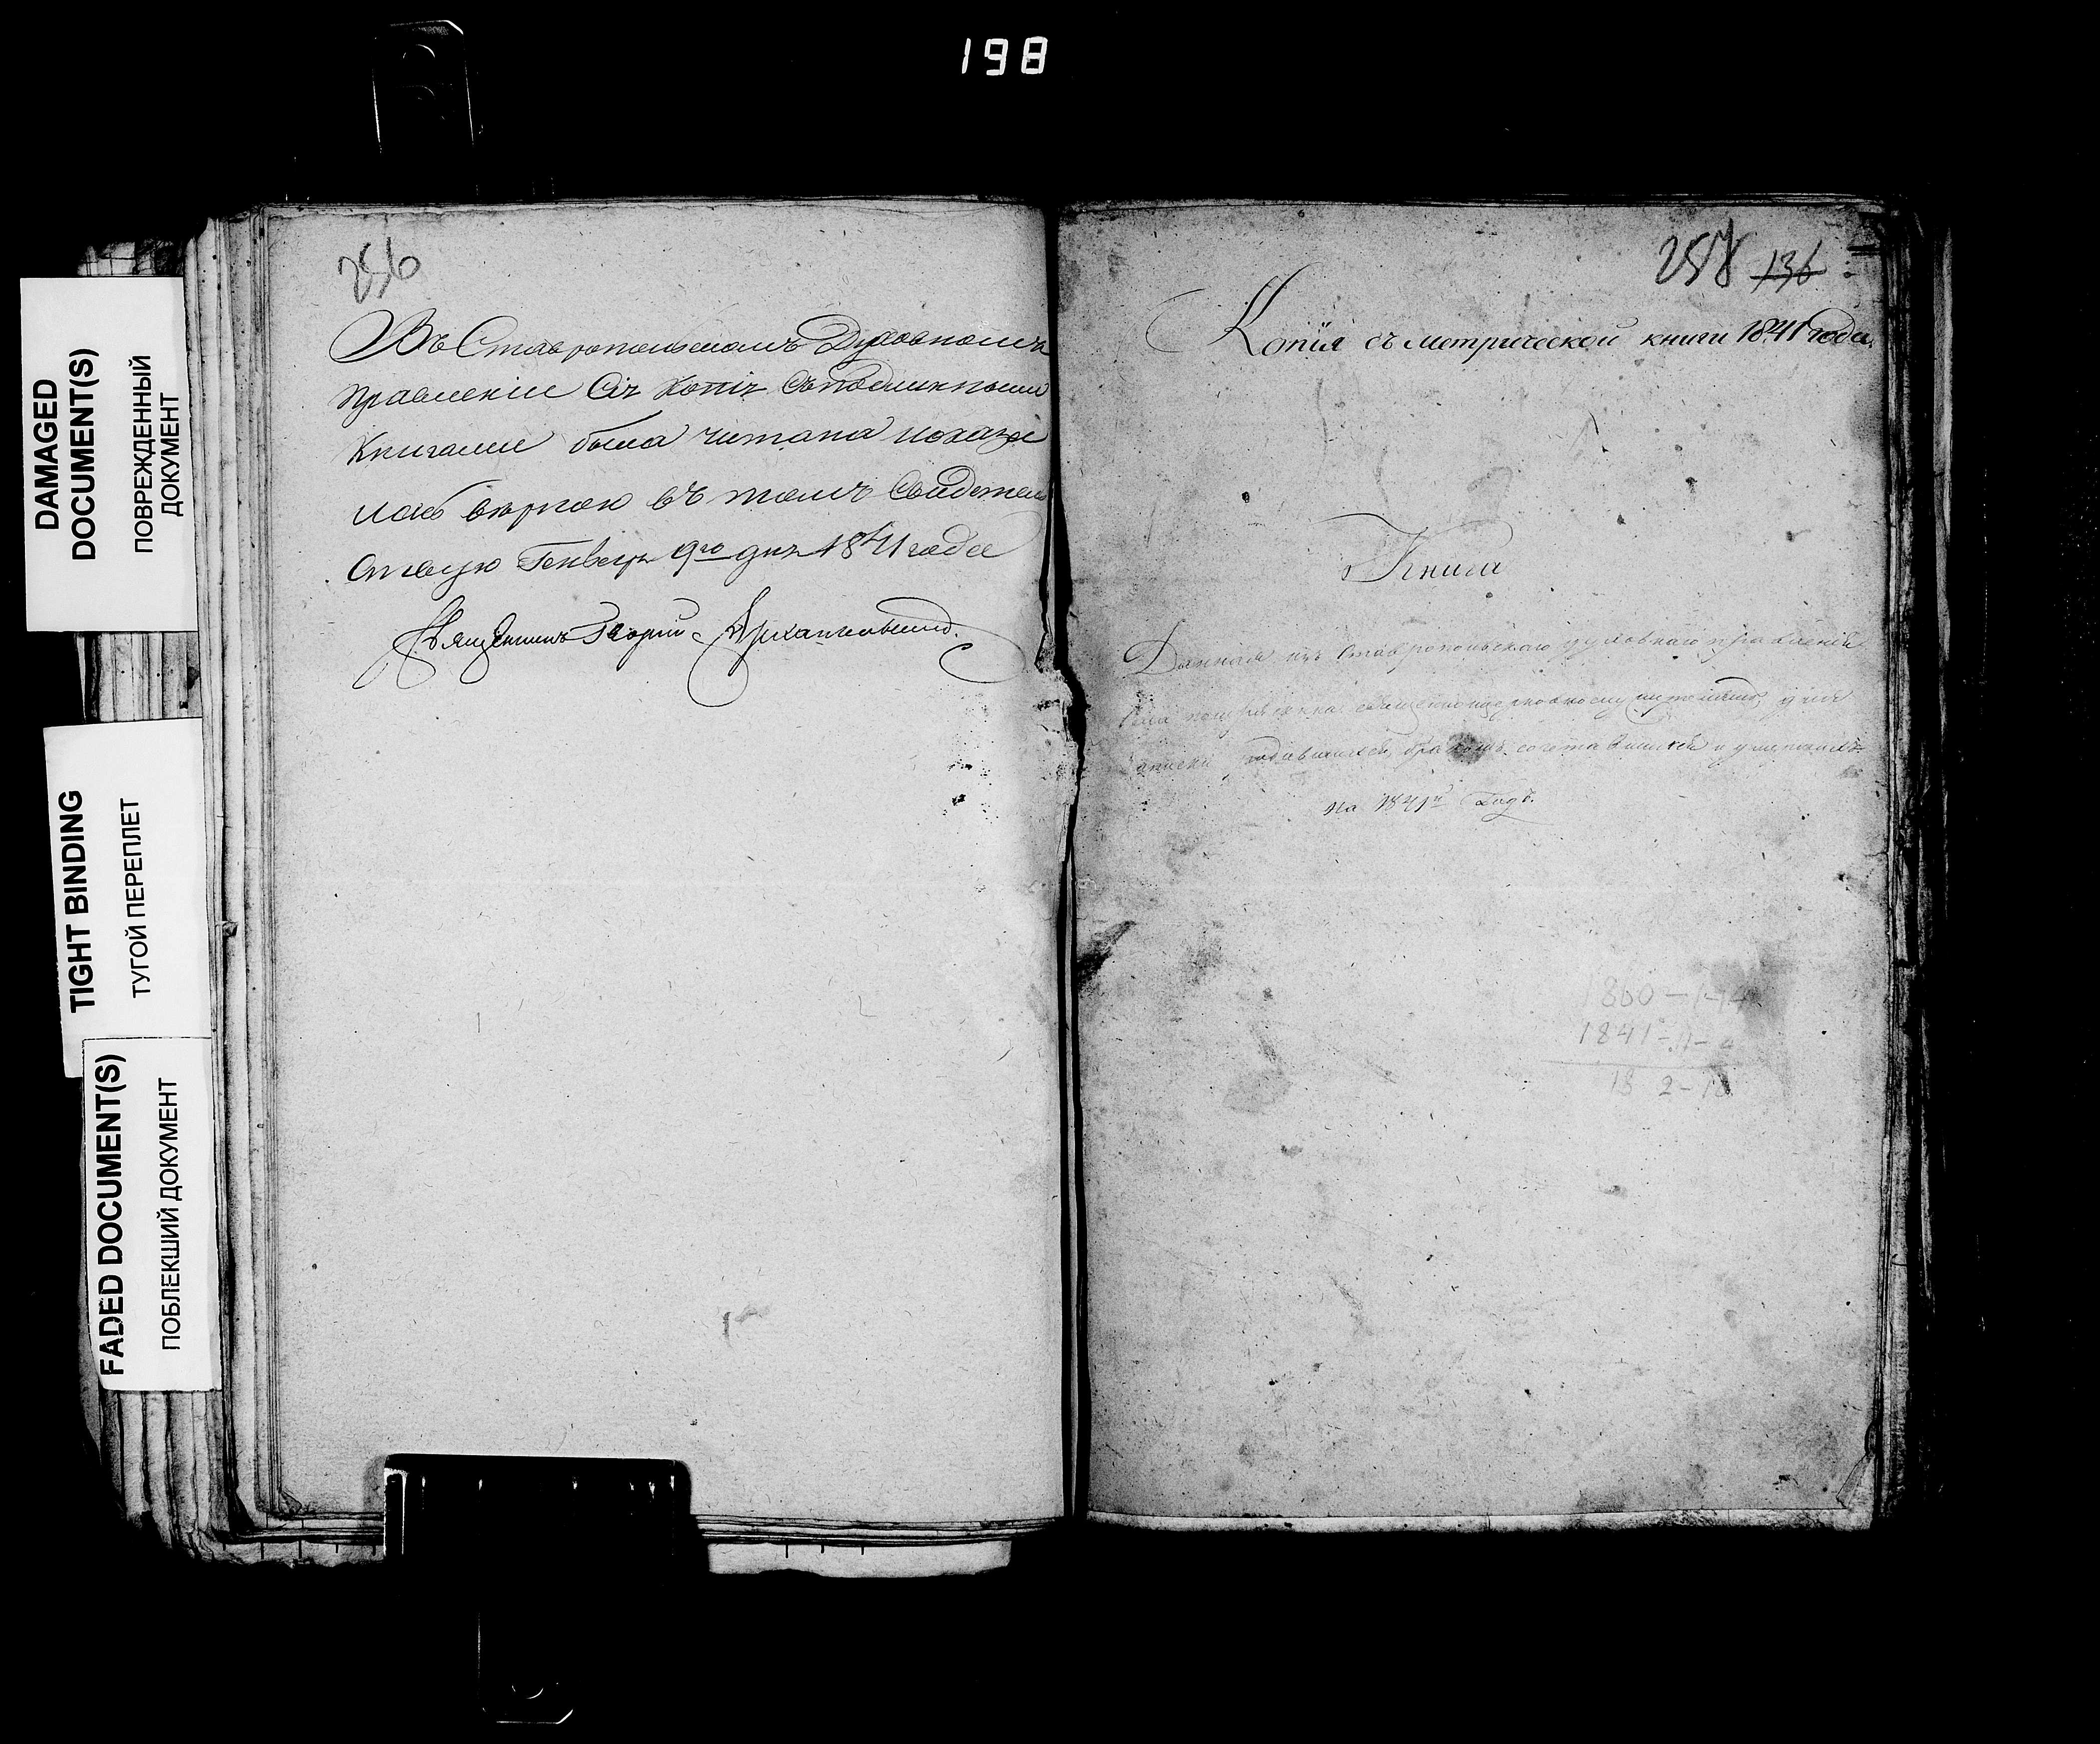 198
DAMAGED
DOCUMENT(S)
ПОВРЕЖДЕННЫЙ
ДОКУМЕНТ
TIGHT BINDING
ТУГОЙ ПЕРЕПЛЕТ
FADED DOCUMENT(S)
ПОБЛЕКШИЙ ДОКУМЕНТ
256
Въ Ставропольскомъ Духовномъ
правленіи Сія Копія Съ подлинными
Книгами была читана и оказа
лась верною въ томъ Свидетель
Ствую Генваря 9го дня 1841 года
Священникъ Георгій Архангельский.
257 136
Копія съ метрической книги 1841 года.
Книга
Данная изъ Ставропольскаго духовнаго правленія
священноцерковному для
родившихся, бракомъ сочетавшихся и умершихъ
на 1841й Годъ.
1841